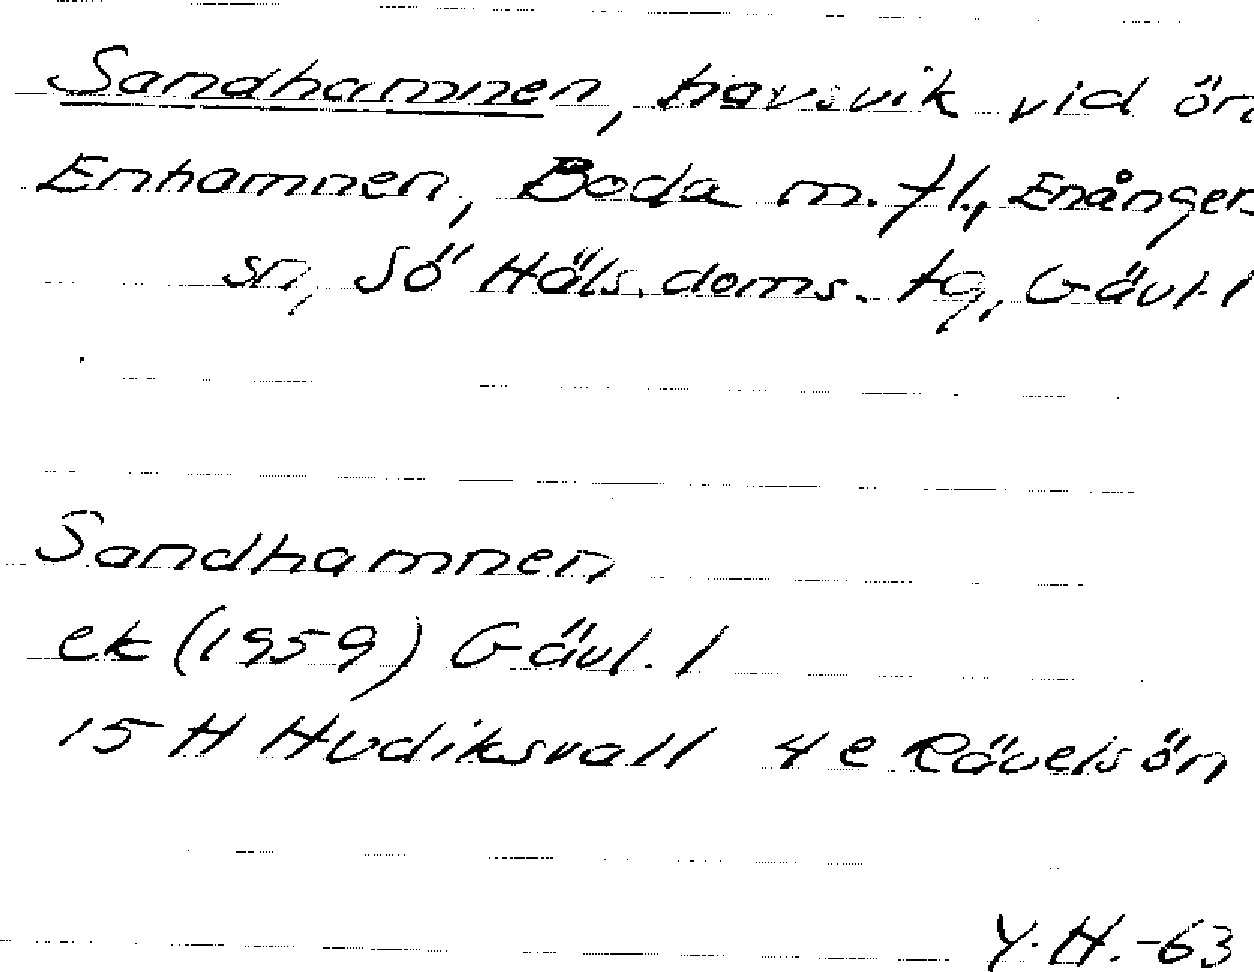 Sandhamnen, havsvik vid ön
Enhamnen, Boda m.fl., Enångers
sn, Sö Häls. doms. tg, Gävl. l
Sandhamnen
ek (1959) Gävl. l
15 H Hudiksvall 4 e Rävelsön
Y.H.-63